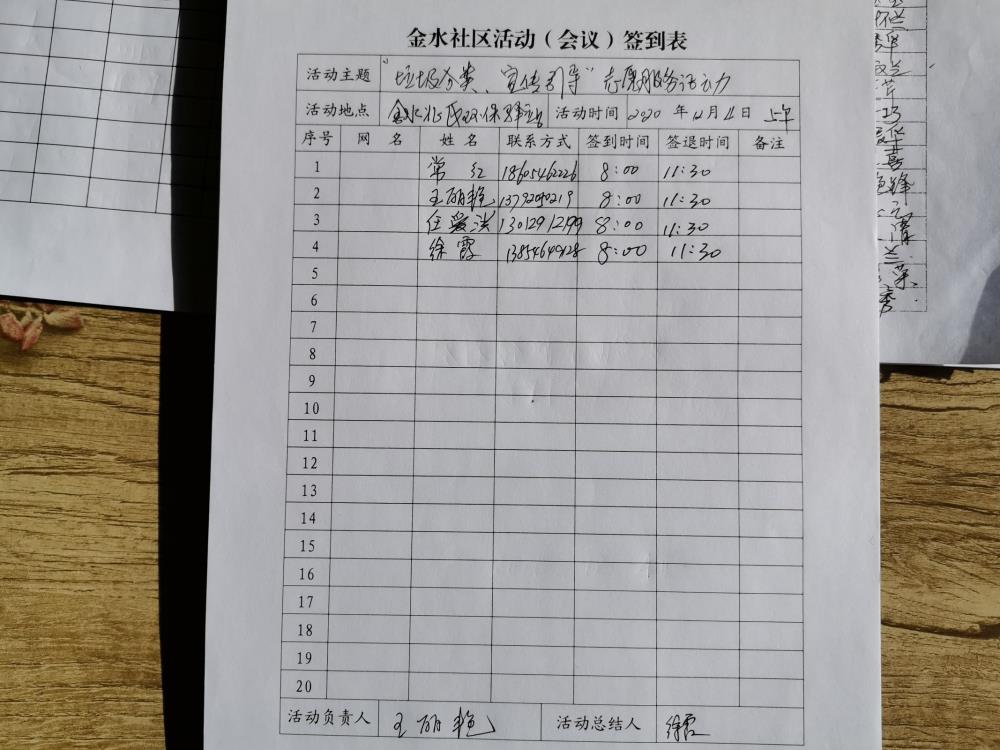 金水社区活动（会议）签到表
活动主题 “垃圾分类、宣传引导”志愿服务活动
活动地点 金水社区环保驿站 活动时间 2020 年 12月 11日 上午
序号 网 名 姓 名 联系方式 签到时间 签退时间 备注
1 常 红 18605462226 8:00 11:30
2 王丽艳 8:00 11:30
3 任爱法 13012912199 8:00 11:30
4 徐霞 8:00 11:30
5
6
7
8
9
10
11
12
13
14
15
16
17
18
19
20
活动负责人 王丽艳 活动总结人 徐霞